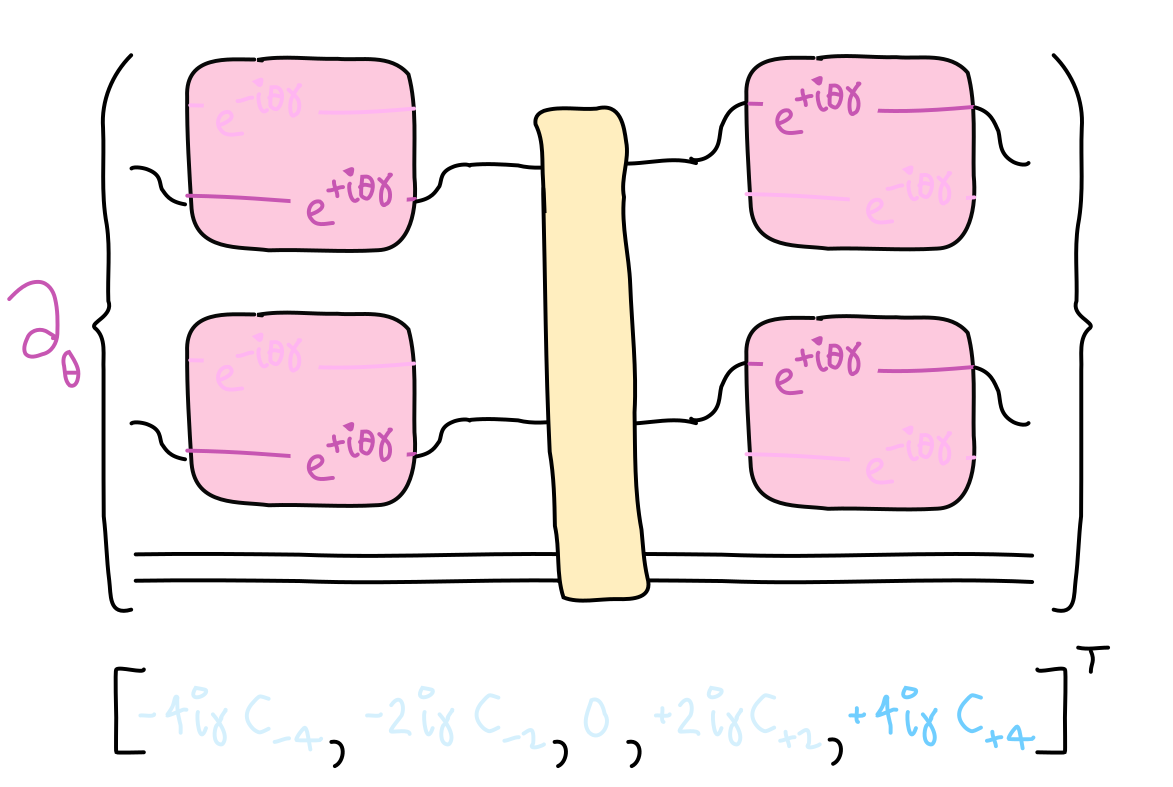 e^{-iθγ} e^{+iθγ}
e^{+iθγ} e^{-iθγ}
∂_θ
e^{-iθγ} e^{+iθγ}
e^{+iθγ} e^{-iθγ}
[-4iγ C_{-4}, -2iγ C_{-2}, 0, +2iγ C_{+2}, +4iγ C_{+4}]^T